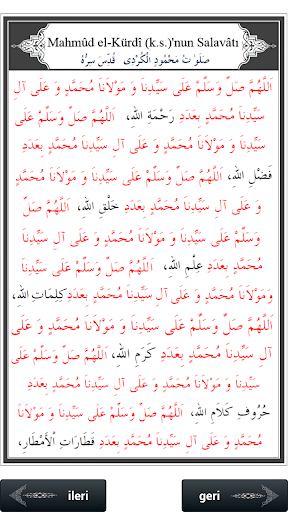 Mahmûd el-Kürdî (k.s.)'nun Salavâtı
صَلَوَاتُ مَحْمُودِ الْكُرْدِى قُدِّسَ سِرُّهُ
اَللّٰهُمَّ صَلِّ وَسَلِّمْ عَلَى سَيِّدِنَا وَ مَوْلَانَا مُحَمَّدٍ وَ عَلَى آلِ
سَيِّدِنَا مُحَمَّدٍ بِعَدَدِ رَحْمَةِ اللهِ، اَللّٰهُمَّ صَلِّ وَسَلِّمْ عَلَى
سَيِّدِنَا وَ مَوْلَانَا مُحَمَّدٍ وَ عَلَى آلِ سَيِّدِنَا مُحَمَّدٍ بِعَدَدِ
فَضْلِ اللهِ، اَللّٰهُمَّ صَلِّ وَسَلِّمْ عَلَى سَيِّدِنَا وَ مَوْلَانَا مُحَمَّدٍ
وَ عَلَى آلِ سَيِّدِنَا مُحَمَّدٍ بِعَدَدِ خَلْقِ اللهِ، اَللّٰهُمَّ صَلِّ
وَسَلِّمْ عَلَى سَيِّدِنَا وَ مَوْلَانَا مُحَمَّدٍ وَ عَلَى آلِ سَيِّدِنَا
مُحَمَّدٍ بِعَدَدِ عِلْمِ اللهِ، اَللّٰهُمَّ صَلِّ وَسَلِّمْ عَلَى سَيِّدِنَا
وَمَوْلَانَا مُحَمَّدٍ وَ عَلَى آلِ سَيِّدِنَا مُحَمَّدٍ بِعَدَدِ كَلِمَاتِ اللهِ،
اَللّٰهُمَّ صَلِّ وَسَلِّمْ عَلَى سَيِّدِنَا وَ مَوْلَانَا مُحَمَّدٍ وَ عَلَى
آلِ سَيِّدِنَا مُحَمَّدٍ بِعَدَدِ كَرَمِ اللهِ، اَللّٰهُمَّ صَلِّ وَسَلِّمْ عَلَى
سَيِّدِنَا وَ مَوْلَانَا مُحَمَّدٍ وَ عَلَى آلِ سَيِّدِنَا مُحَمَّدٍ بِعَدَدِ
حُرُوفِ كَلَامِ اللهِ، اَللّٰهُمَّ صَلِّ وَسَلِّمْ عَلَى سَيِّدِنَا وَ مَوْلَانَا
مُحَمَّدٍ وَ عَلَى آلِ سَيِّدِنَا مُحَمَّدٍ بِعَدَدِ قَطَارَاتِ الْأَمْطَارِ،
ileri
geri